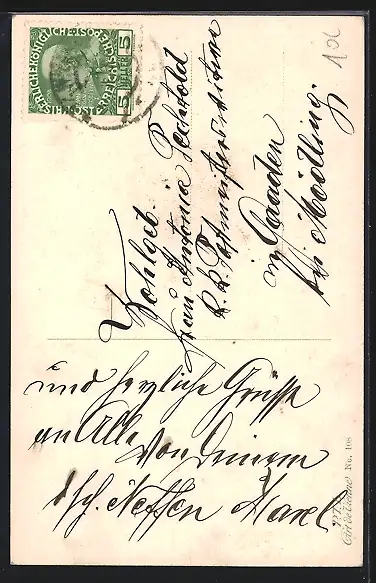 KAISERLICHE KÖNIGLICHE ÖSTERREICHISCHE POST
5 HELLER 5
Wohlgeb.
Frau Antonia
k. k. Postmeisterin
in Gaaden
bei Mödling.
und herzliche Grüsse
an Alle von Deinem
Neffen Karl
No. 108